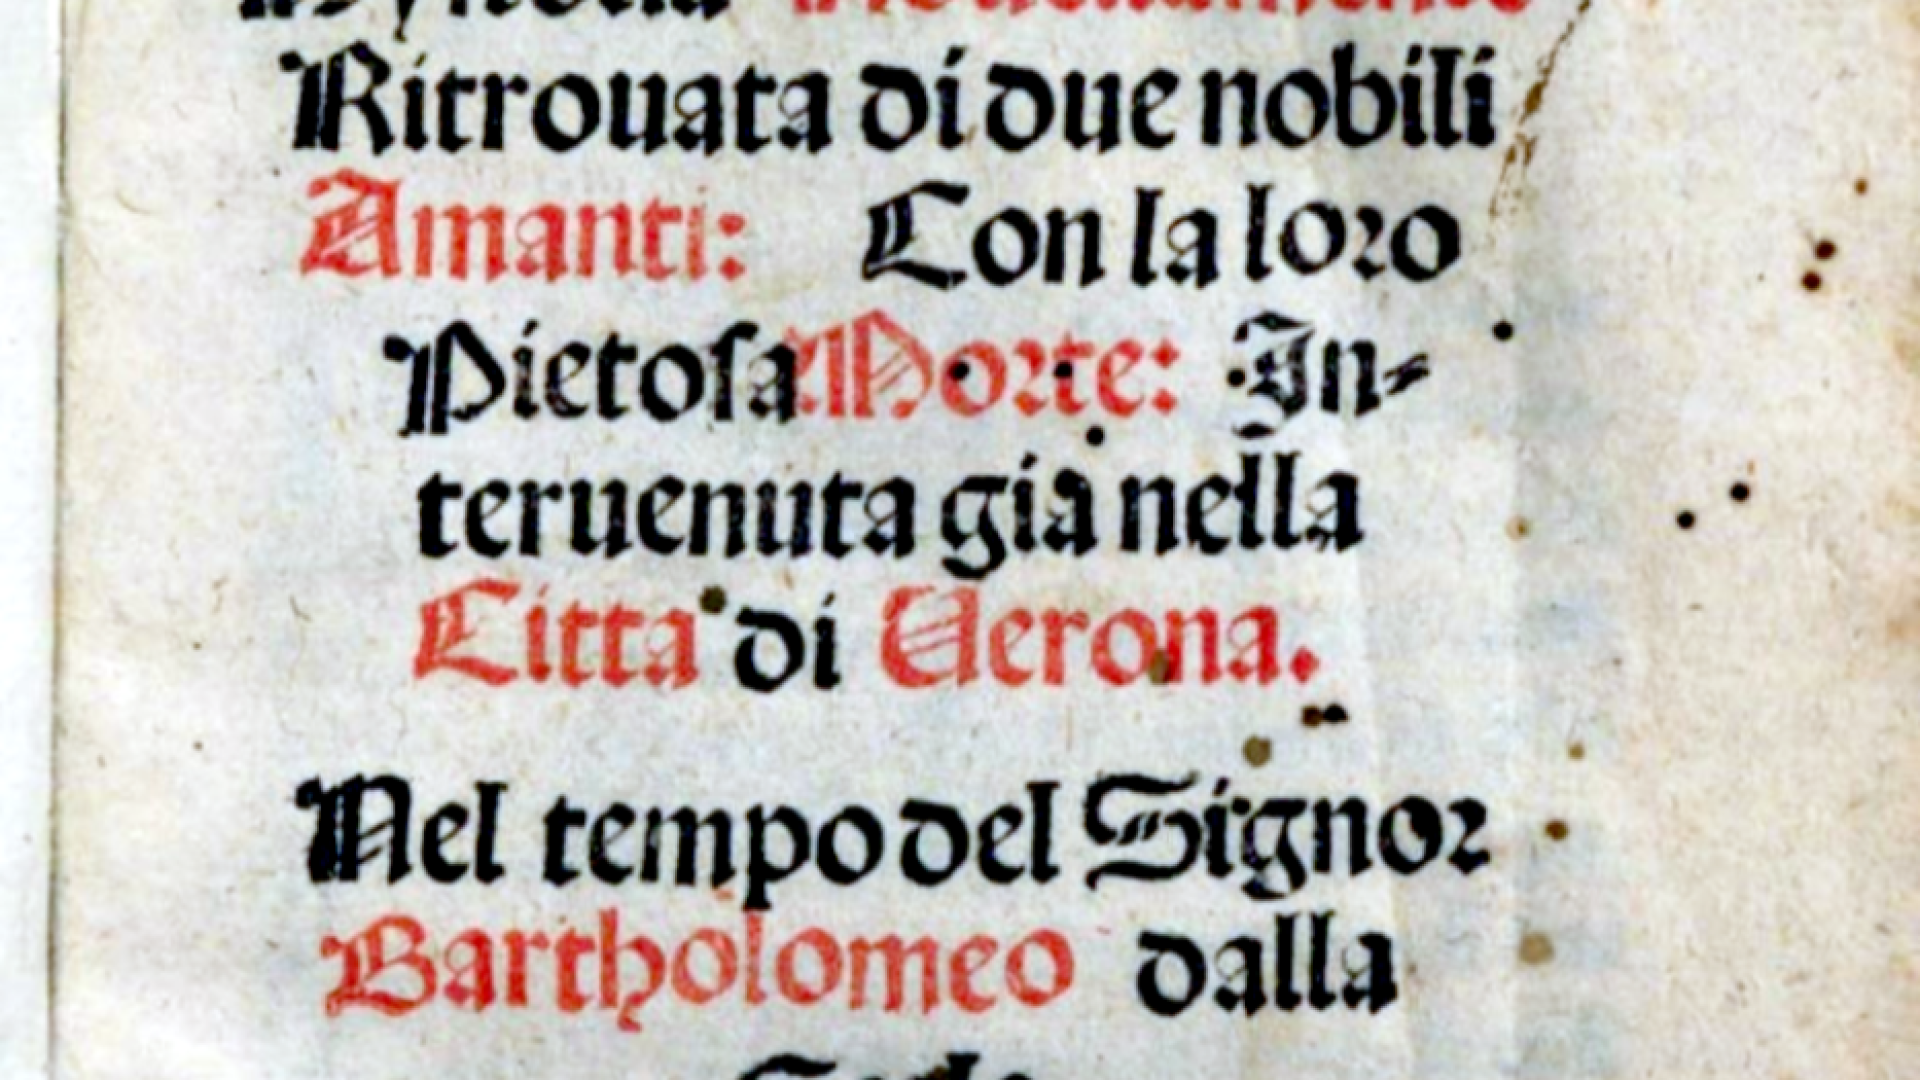 Hystoria Nouellamente
Ritrouata di due nobili
Amanti: Con la loro
Pietosa Morte: In-
teruenuta gia nella
Citta di Uerona.
Nel tempo del Signor
Bartholomeo dalla